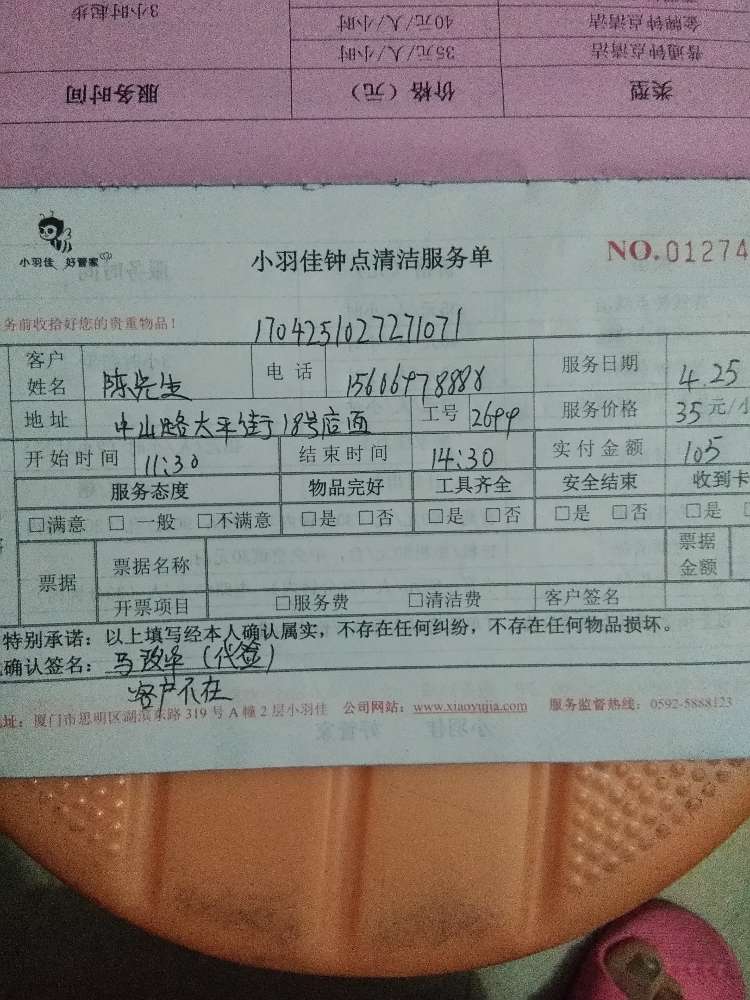 3小时起步
40元/人/小时
金牌钟点清洁
35元/人/小时
普通钟点清洁
服务时间
价格（元）
类型
小羽佳 好管家
小羽佳钟点清洁服务单
NO.01274
务前收拾好您的贵重物品！
1704251027271071
客户姓名 陈先生 电话 15606978888 服务日期 4.25
地址 中山路太平街18号店面 工号 2699 服务价格 35元/小
开始时间 11:30 结束时间 14:30 实付金额 105
服务态度 物品完好 工具齐全 安全结束 收到卡
□满意 □一般 □不满意 □是 □否 □是 □否 □是 □否 □是
票据 票据名称 票据金额
开票项目 □服务费 □清洁费 客户签名
特别承诺：以上填写经本人确认属实，不存在任何纠纷，不存在任何物品损坏。
确认签名： （代签）
客户不在
址：厦门市思明区湖滨东路319号A幢2层小羽佳 公司网站：www.xiaoyujia.com 服务监督热线：0592-5888123